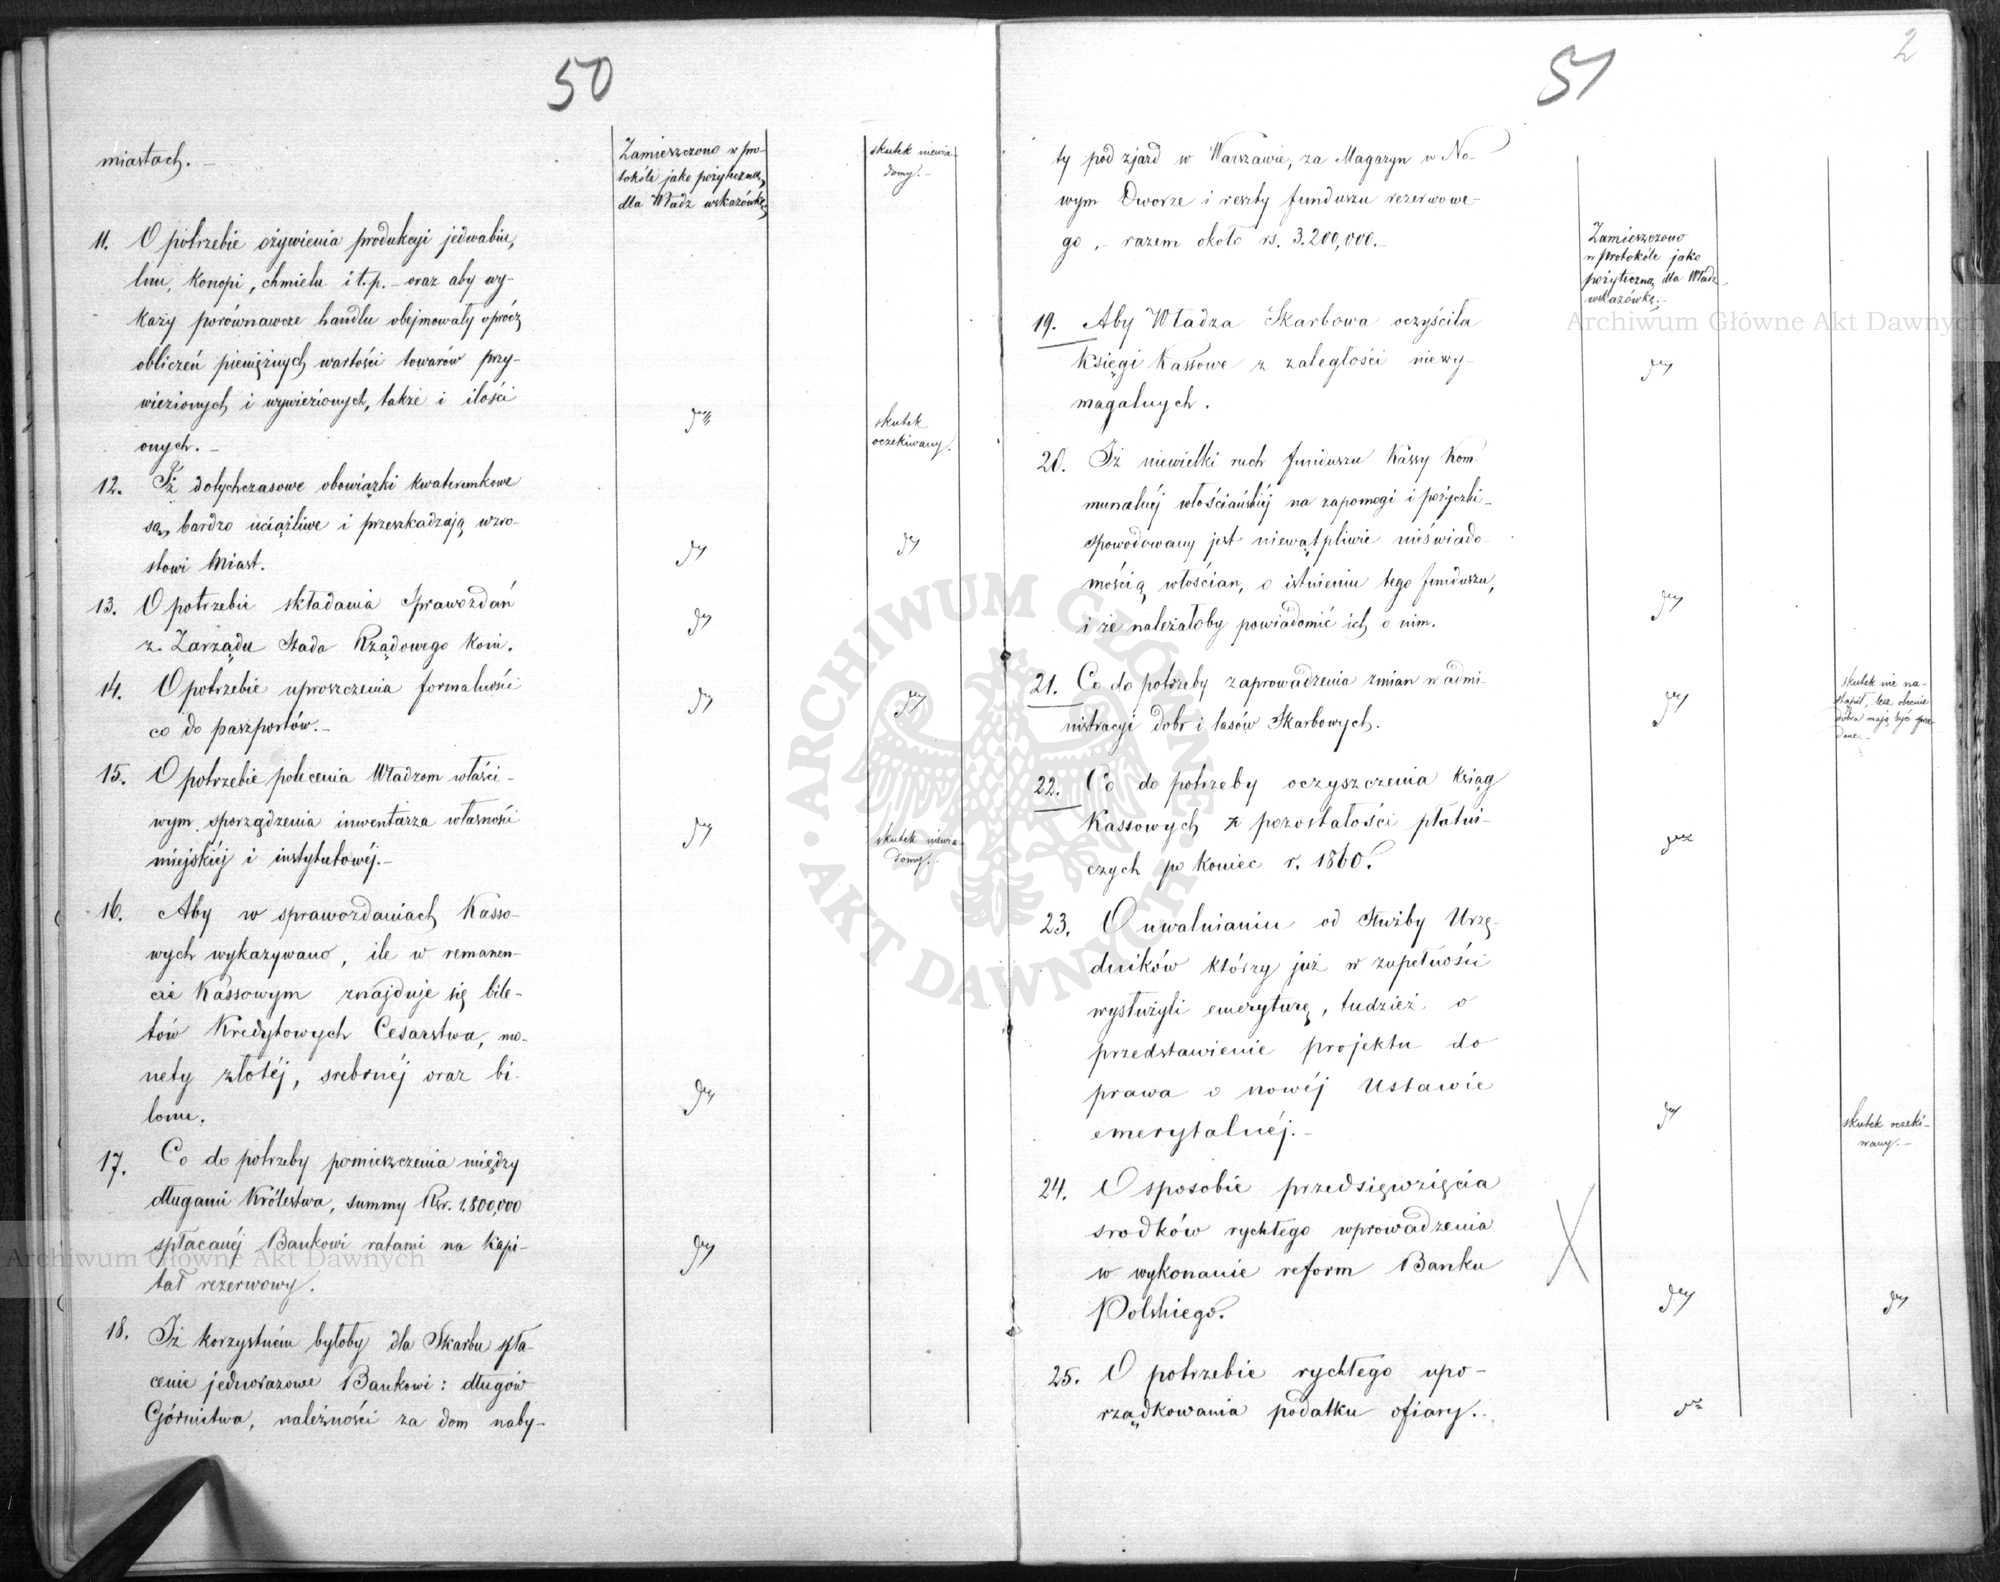 50
miastach. –
Zamieszczono w pro-
tokóle jako pożyteczną
dla Władz wskazówkę.
skutek niewia-
domy. –
11. O potrzebie ożywienia produkcyi jedwabiu,
lnu, konopi, chmielu i t.p. – oraz aby wy-
kazy porównawcze handlu obejmowały oprócz
obliczeń pieniężnych wartości towarów przy-
wiezionych i wywiezionych, także i ilości
onych. –
skutek
oczekiwany.
12. Iż dotychczasowe obowiązki kwaterunkowe
są bardzo uciążliwe i przeszkadzają wzro-
stowi Miast.
13. O potrzebie składania Sprawozdań
z Zarządu Stada Rządowego koni.
14. O potrzebie uproszczenia formalności
co do paszportów. –
15. O potrzebie polecenia Władzom właści-
wym sporządzenia inwentarza własności
miejskiéj i instytutowéj. –
skutek niewia-
domy. –
16. Aby w sprawozdaniach Kasso-
wych wykazywano, ile w remanen-
cie Kassowym znajduje się bile-
tów Kredytowych Cesarstwa, mo-
nety złotéj, srebrnéj oraz bi-
lonu.
17. Co do potrzeby pomieszczenia między
długami Królestwa, summy Rsr. 1.800,000
spłacanéj Bankowi ratami na kapi-
tał rezerwowy.
18. Iż korzystném byłoby dla Skarbu spła-
cenie jednorazowe Bankowi: długów
Górnictwa, należności za dom naby-
51
2
ty pod zjazd w Warszawie, za Magazyn w No-
wym Dworze i reszty funduszu rezerwowe-
go, – razem około rs. 3.200,000. –
Zamieszczono
w protokóle jako
pożyteczną dla Władz
wskazówkę. –
19. Aby Władza Skarbowa oczyściła
Księgi Kassowe z zaległości niewy-
magalnych.
20. Iż niewielki ruch funduszu Kassy Kom-
munalnéj włościańskiéj na zapomogi i pożyczki –
spowodowany jest niewątpliwie nieświado-
mością włościan, o istnieniu tego funduszu,
i że należałoby powiadomić ich o nim.
21. Co do potrzeby zaprowadzenia zmian w admi-
nistracyi dobr i lasów Skarbowych.
skutek nie na-
stąpił, lecz obecnie
dobra mają być sprze-
dane. –
22. Co do potrzeby oczyszczenia ksiąg
Kassowych z pozostałości płatni-
czych po koniec r. 1860.
23. O uwalnianiu od Służby Urzę-
dników którzy już w zupełności
wysłużyli emeryturę, tudzież o
przedstawienie projektu do
prawa o nowéj Ustawie
emerytalnéj. –
skutek oczeki-
wany. –
24. O sposobie przedsięwzięcia
srodków rychłego wprowadzenia
w wykonanie reform Banku
Polskiego.
25. O potrzebie rychłego upo-
rządkowania podatku ofiary. –
Archiwum Główne Akt Dawnych
Archiwum Główne Akt Dawnych
ARCHIWUM GŁÓWNE · AKT DAWNYCH ·